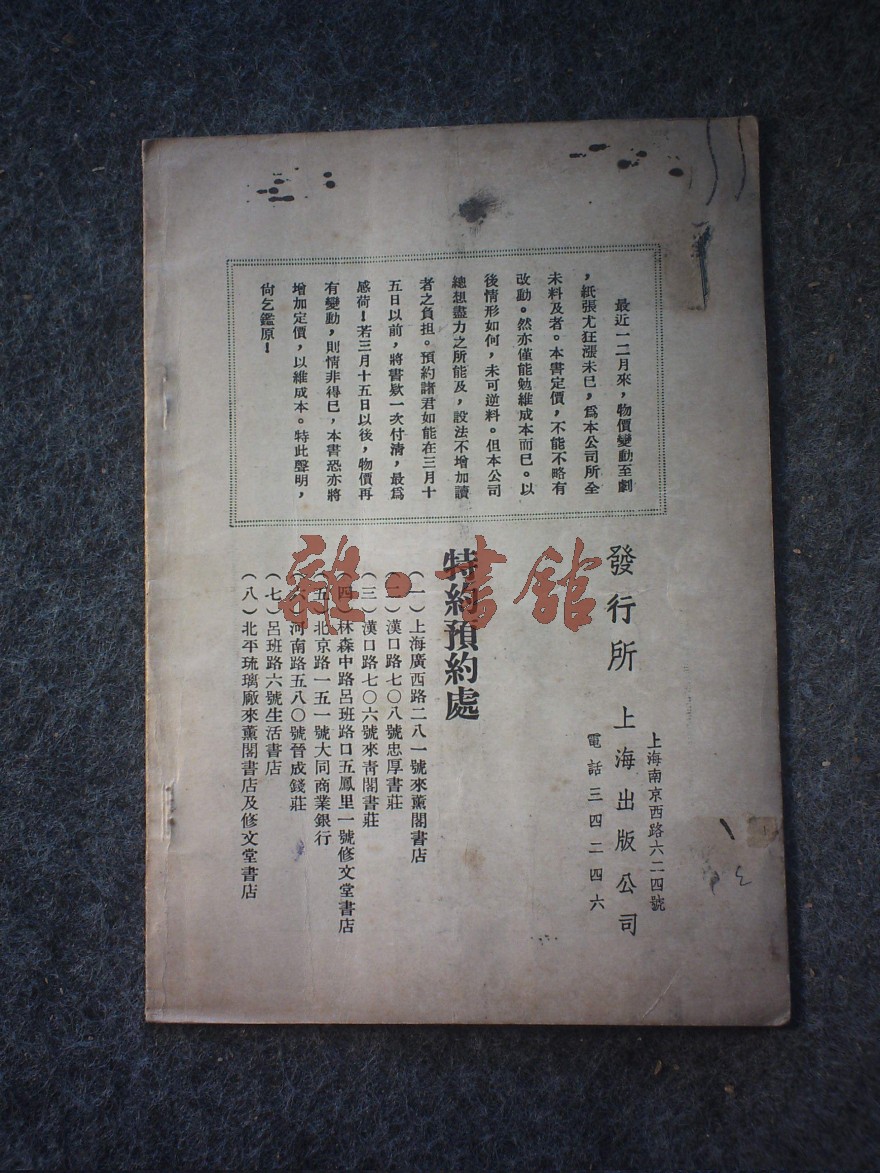 最近一二月來，物價變動至劇
，紙張尤狂漲未已，爲本公司所全
未料及者。本書定價，不能不略有
改動。然亦僅能勉維成本而已。以
後情形如何，未可逆料。但本公司
總想盡力之所能及，設法不增加讀
者之負担。預約諸君如能在三月十
五日以前，將書欵一次付清，最爲
感荷！若三月十五日以後，物價再
有變動，則情非得已，本書恐亦將
增加定價，以維成本。特此聲明，
尙乞鑑原！
上海南京西路六二四號
發行所 上海出版公司
電話三四二四六
特約預約處
（一）上海廣西路二八一號來薰閣書店
（二）漢口路七〇八號忠厚書莊
（三）漢口路七〇六號來靑閣書莊
（四）林森中路呂班路口五鳳里一號修文堂書店
（五）北京路一五一號大同商業銀行
（六）河南路五八〇號晉成錢莊
（七）呂班路六號生活書店
（八）北平琉璃廠來薰閣書店及修文堂書店
雜·書館